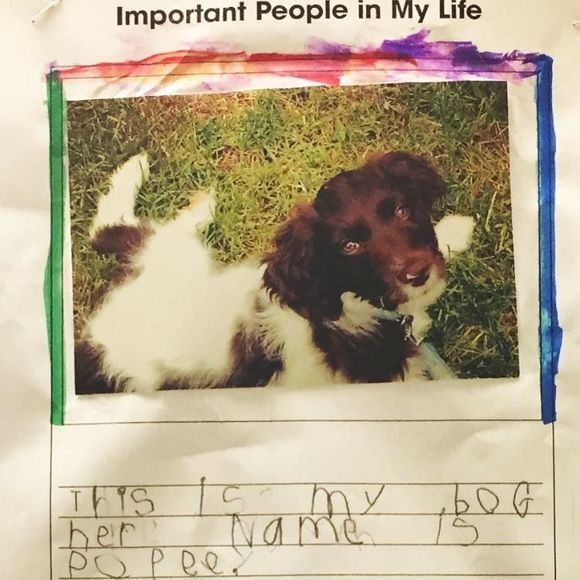 Important People in My Life
THis Is my bOG
her Name is
popee.